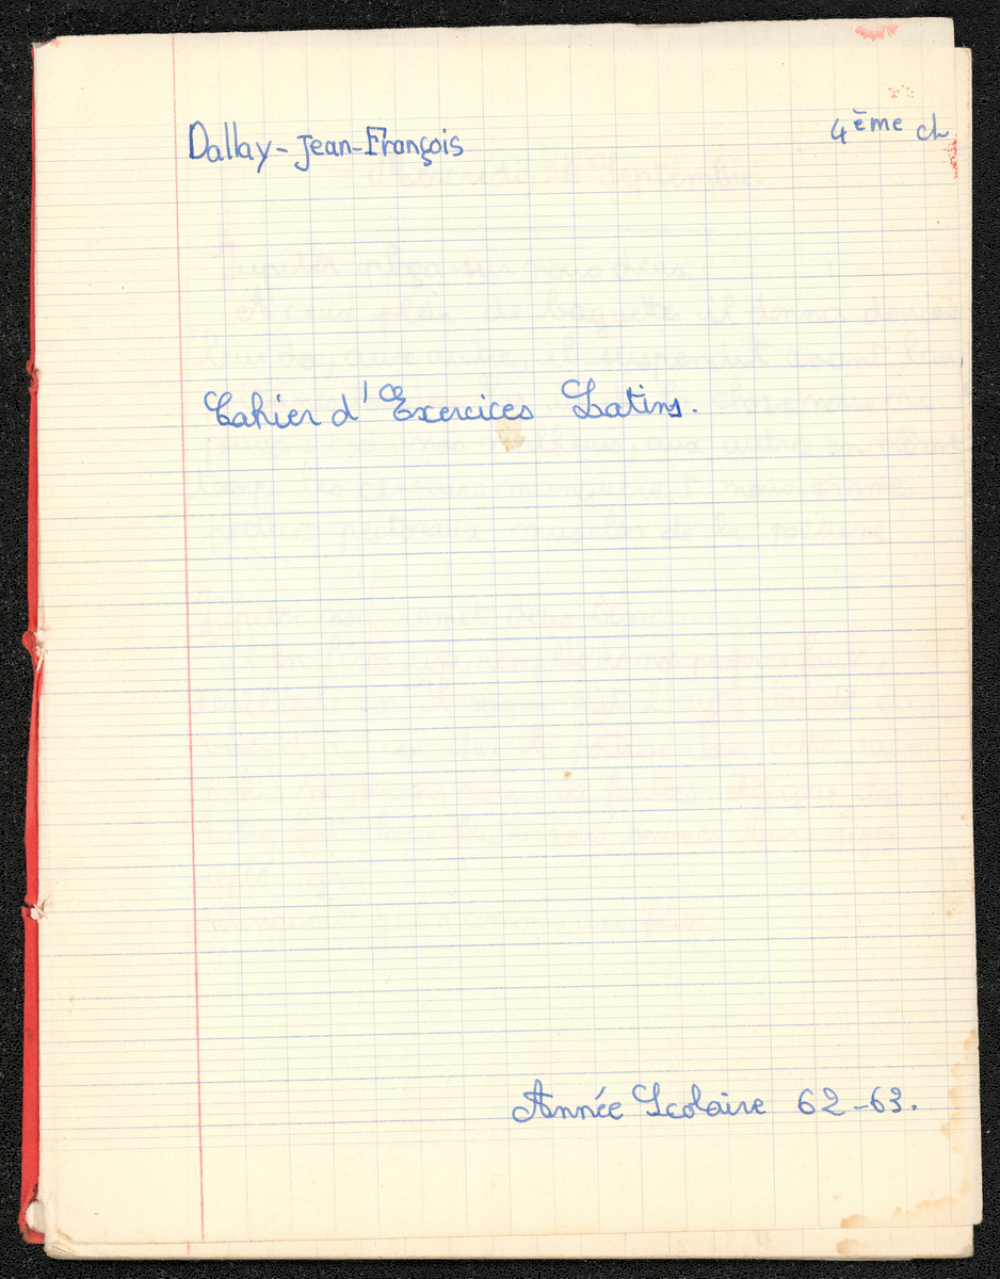 Dallay-Jean-François
4ème ch
Cahier d'Exercices Latins.
Année Scolaire 62-63.